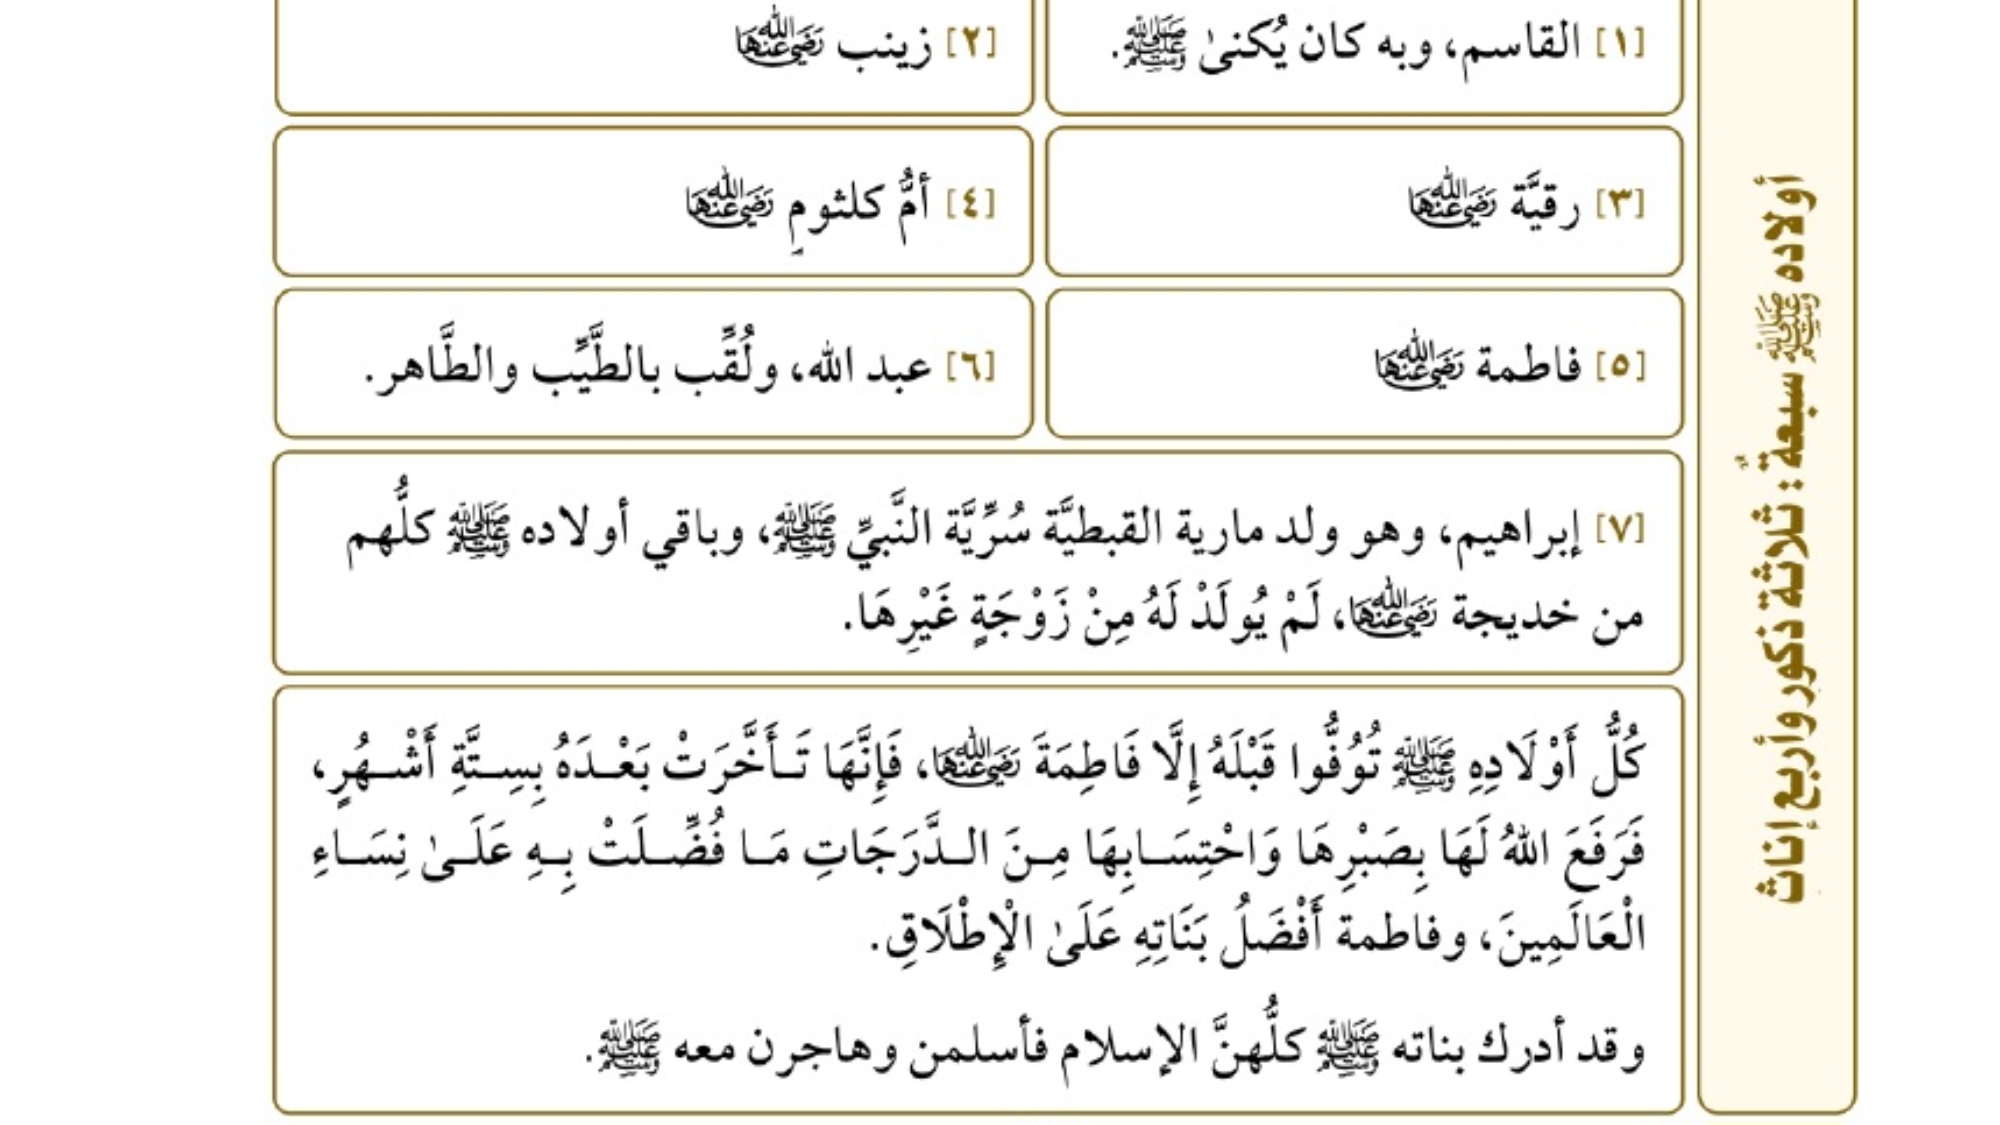 أولاده ﷺ سبعةٌ: ثلاثة ذكور وأربع إناث
[١] القاسم، وبه كان يُكنىٰ ﷺ.
[٢] زينب رَضِيَ اللَّهُ عَنْهَا
[٣] رقيَّة رَضِيَ اللَّهُ عَنْهَا
[٤] أمُّ كلثومٍ رَضِيَ اللَّهُ عَنْهَا
[٥] فاطمة رَضِيَ اللَّهُ عَنْهَا
[٦] عبد الله، ولُقِّب بالطَّيِّب والطَّاهر.
[٧] إبراهيم، وهو ولد مارية القبطيَّة سُرِّيَّة النَّبيِّ ﷺ، وباقي أولاده ﷺ كلُّهم
من خديجة رَضِيَ اللَّهُ عَنْهَا، لَمْ يُولَدْ لَهُ مِنْ زَوْجَةٍ غَيْرِهَا.
كُلُّ أَوْلَادِهِ ﷺ تُوُفُّوا قَبْلَهُ إِلَّا فَاطِمَةَ رَضِيَ اللَّهُ عَنْهَا، فَإِنَّهَا تَأَخَّرَتْ بَعْدَهُ بِسِتَّةِ أَشْهُرٍ،
فَرَفَعَ اللهُ لَهَا بِصَبْرِهَا وَاحْتِسَابِهَا مِنَ الدَّرَجَاتِ مَا فُضِّلَتْ بِهِ عَلَىٰ نِسَاءِ
الْعَالَمِينَ، وفاطمة أَفْضَلُ بَنَاتِهِ عَلَىٰ الْإِطْلَاقِ.
وقد أدرك بناته ﷺ كلُّهنَّ الإسلام فأسلمن وهاجرن معه ﷺ.